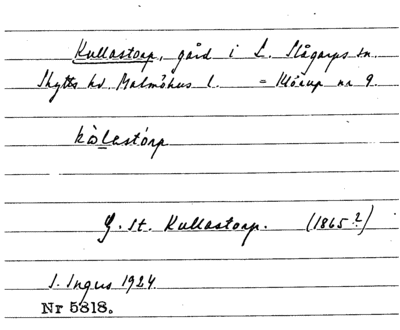 Kullastorp, gård i L. Slågarps sn.
Skytts hd. Malmöhus l. = Klörup nr 9.
kòlastórp
G. st. Kullastorp. (1865?)
S. Ingers 1924.
Nr 5818.